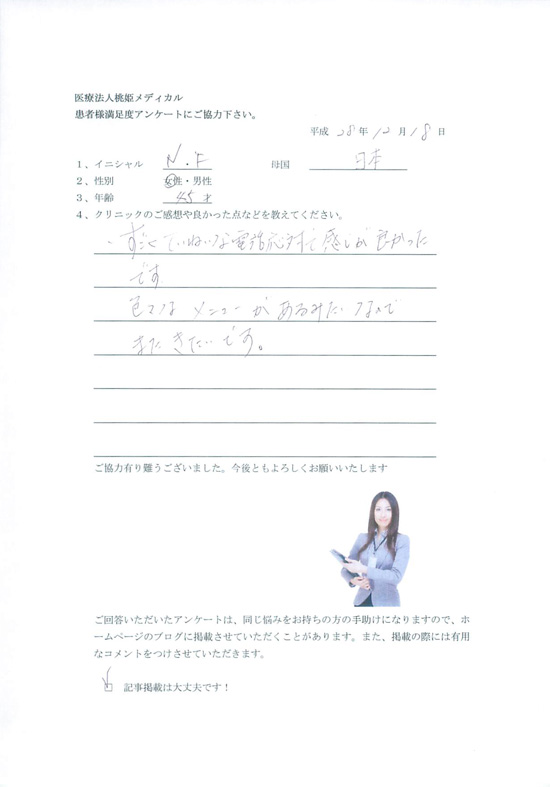 医療法人桃姫メディカル
患者様満足度アンケートにご協力下さい。
平成 28年 12月 18日
1、イニシャル N.F 母国 日本
2、性別 女性・男性
3、年齢 45才
4、クリニックのご感想や良かった点などを教えてください。
・すごくていねいな電話応対で感じが良かった
です
色々なメニューがあるみたいなので
またきたいです。
ご協力有り難うございました。今後ともよろしくお願いいたします
ご回答いただいたアンケートは、同じ悩みをお持ちの方の手助けになりますので、ホ
ームページのブログに掲載させていただくことがあります。また、掲載の際には有用
なコメントをつけさせていただきます。
記事掲載は大丈夫です！